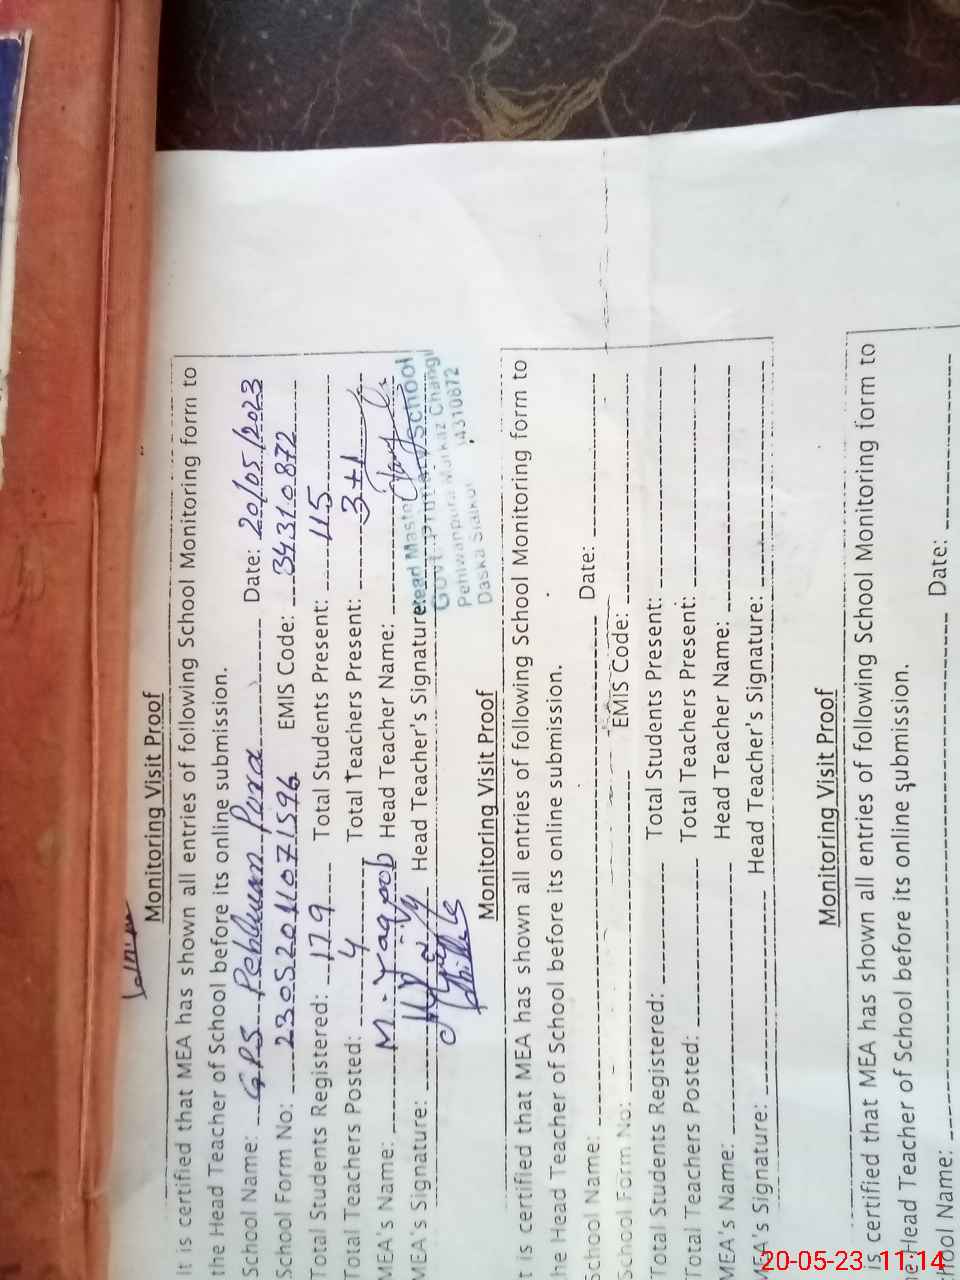 Monitoring Visit Proof
It is certified that MEA has shown all entries of following School Monitoring form to
the Head Teacher of School before its online submission.
School Name: GPS Pehlwan Pura Date: 20/05/2023
School Form No: 23052011071596 EMIS Code: 34310872
Total Students Registered: 179 Total Students Present: 115
Total Teachers Posted: 4 Total Teachers Present: 3+1
MEA's Name: M. Yaqoob Head Teacher Name:
MEA's Signature: Head Teacher's Signature:
Head Master
Govt. Primary School
Pehlwanpura Markaz Changi
Daska Sialkot 34310872
Monitoring Visit Proof
t is certified that MEA has shown all entries of following School Monitoring form to
he Head Teacher of School before its online submission.
School Name: Date:
School Form No: EMIS Code:
Total Students Registered: Total Students Present:
Total Teachers Posted: Total Teachers Present:
MEA's Name: Head Teacher Name:
MEA's Signature: Head Teacher's Signature:
Monitoring Visit Proof
is certified that MEA has shown all entries of following School Monitoring form to
e Head Teacher of School before its online submission.
hool Name: Date:
20-05-23 11:14